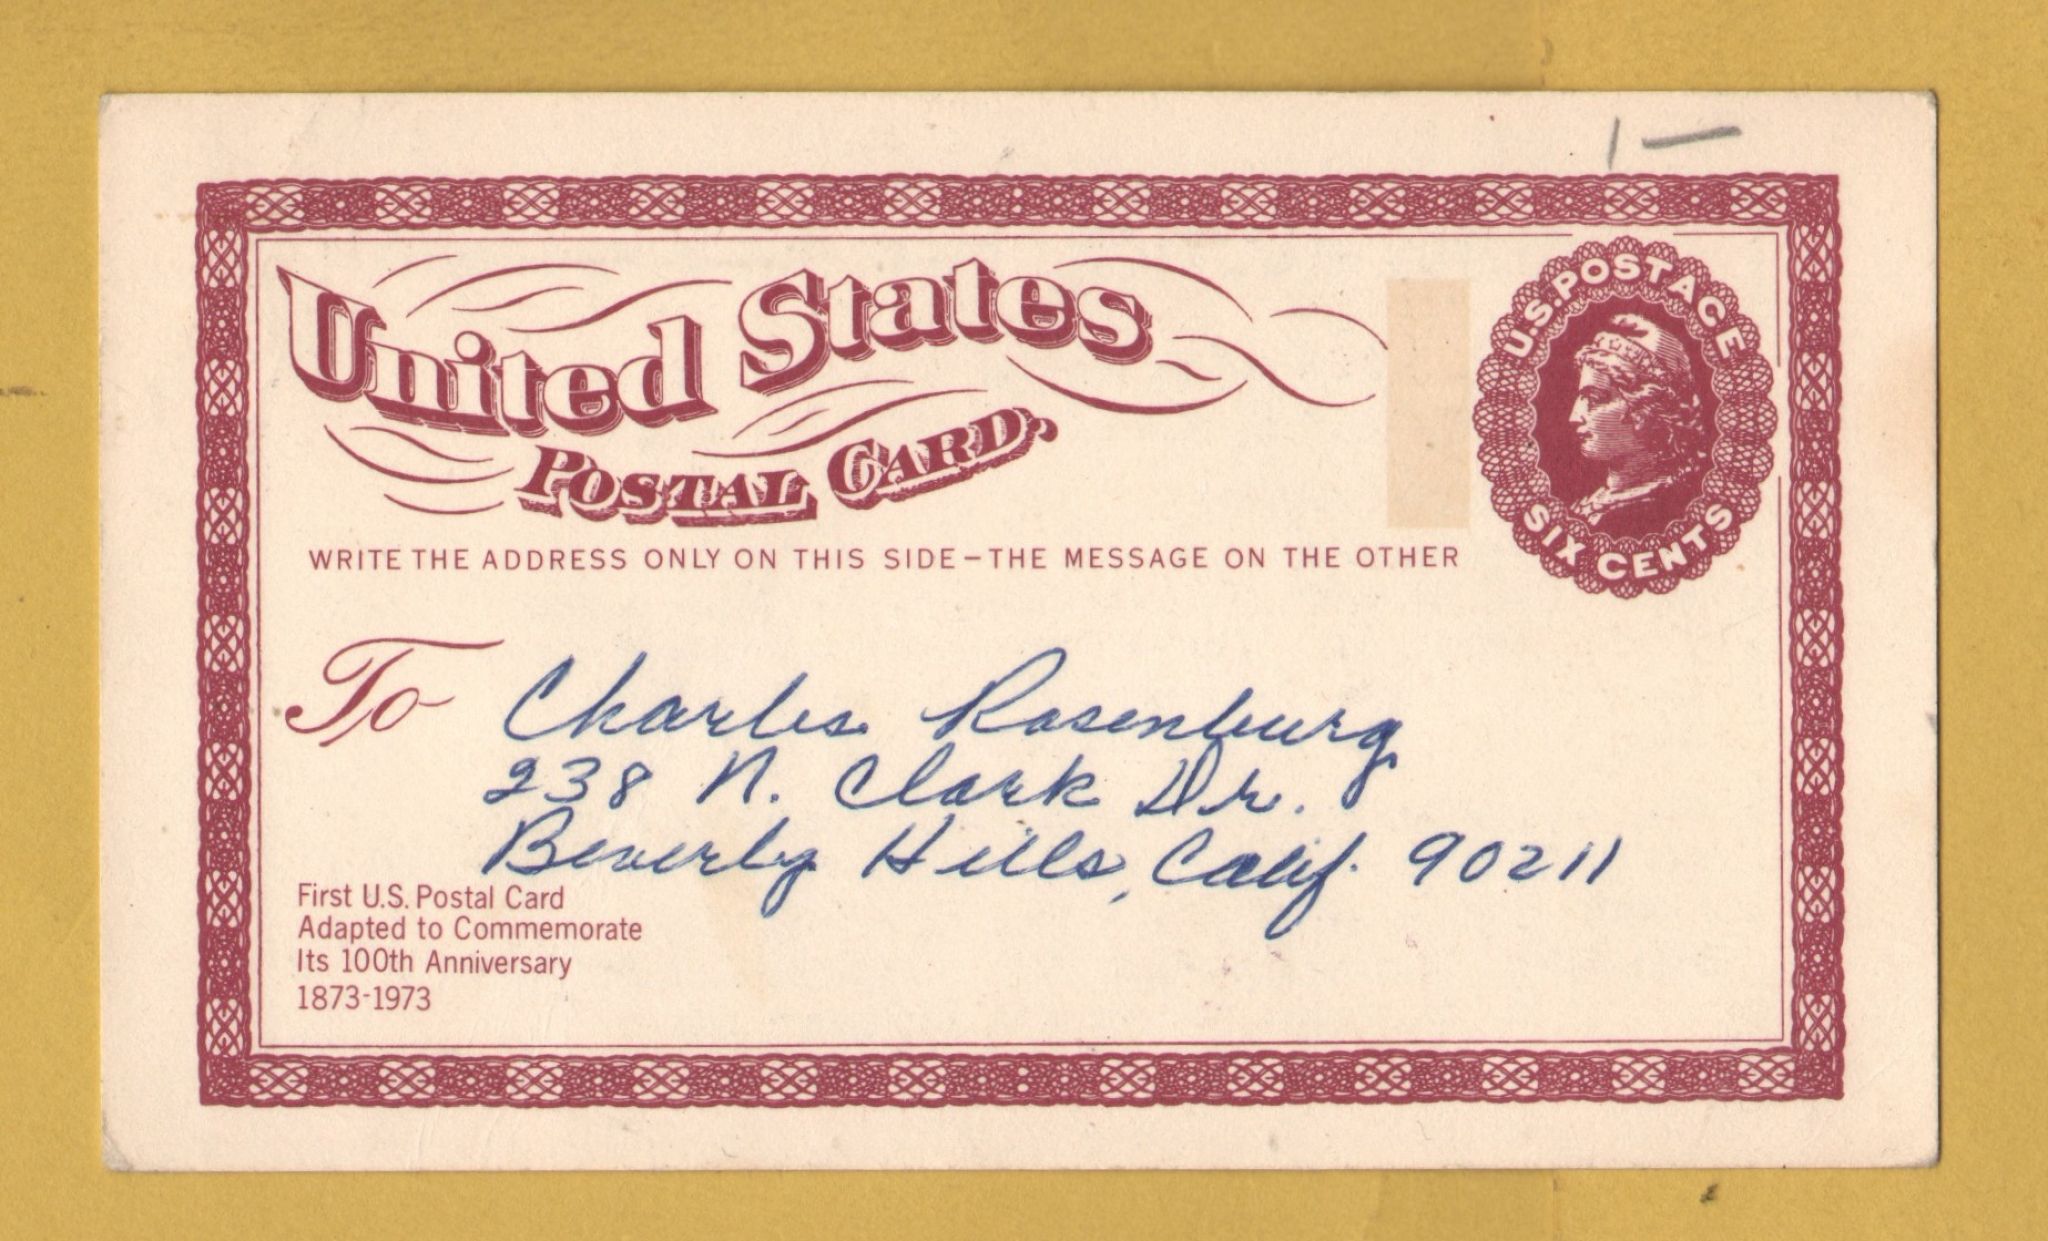 1 —
United States
POSTAL CARD,
U.S. POSTAGE
SIX CENTS
WRITE THE ADDRESS ONLY ON THIS SIDE – THE MESSAGE ON THE OTHER
To Charles Rosenburg
238 N. Clark Dr.
Beverly Hills, Calif. 90211
First U.S. Postal Card
Adapted to Commemorate
Its 100th Anniversary
1873-1973